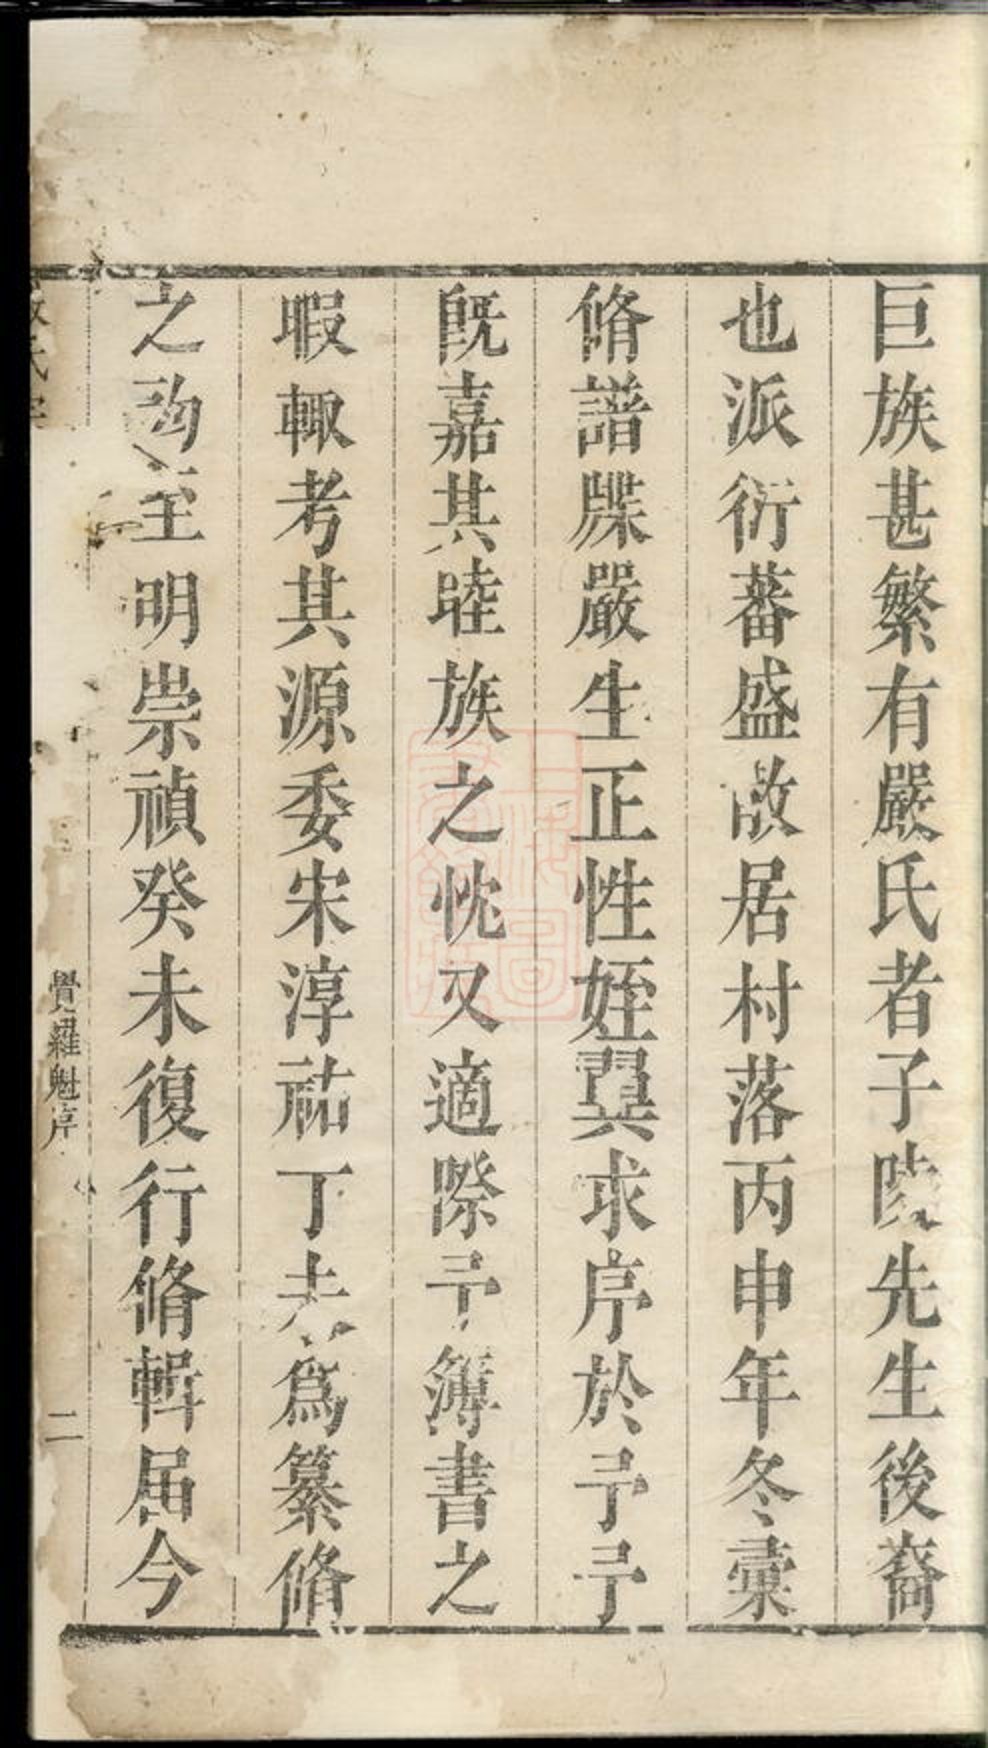 巨族甚繁有嚴氏者子陵先生後裔
也派衍蕃盛散居村落丙申年冬彚
脩譜牒嚴生正性姪巽求序於予予
旣嘉其睦族之忱又適際予簿書之
暇輙考其源委宋淳祐丁未爲纂脩
之始至明崇禎癸未復行脩輯届今
覺羅魁序
二